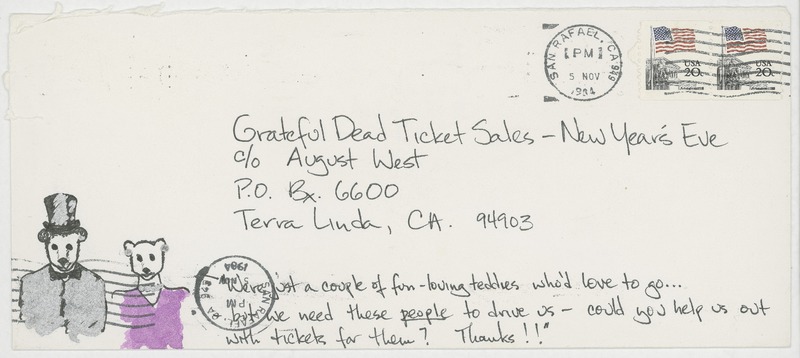 SAN RAFAEL, CA 949
PM
5 NOV
1984
USA
20c
USA
20c
Grateful Dead Ticket Sales - New Year's Eve
c/o August West
P.O. Bx. 6600
Terra Linda, CA. 94903
"We're just a couple of fun-loving teddies who'd love to go...
but we need these people to drive us - could you help us out
with tickets for them? Thanks!!"
SAN RAFAEL, CA 949
PM
5 NOV
1984